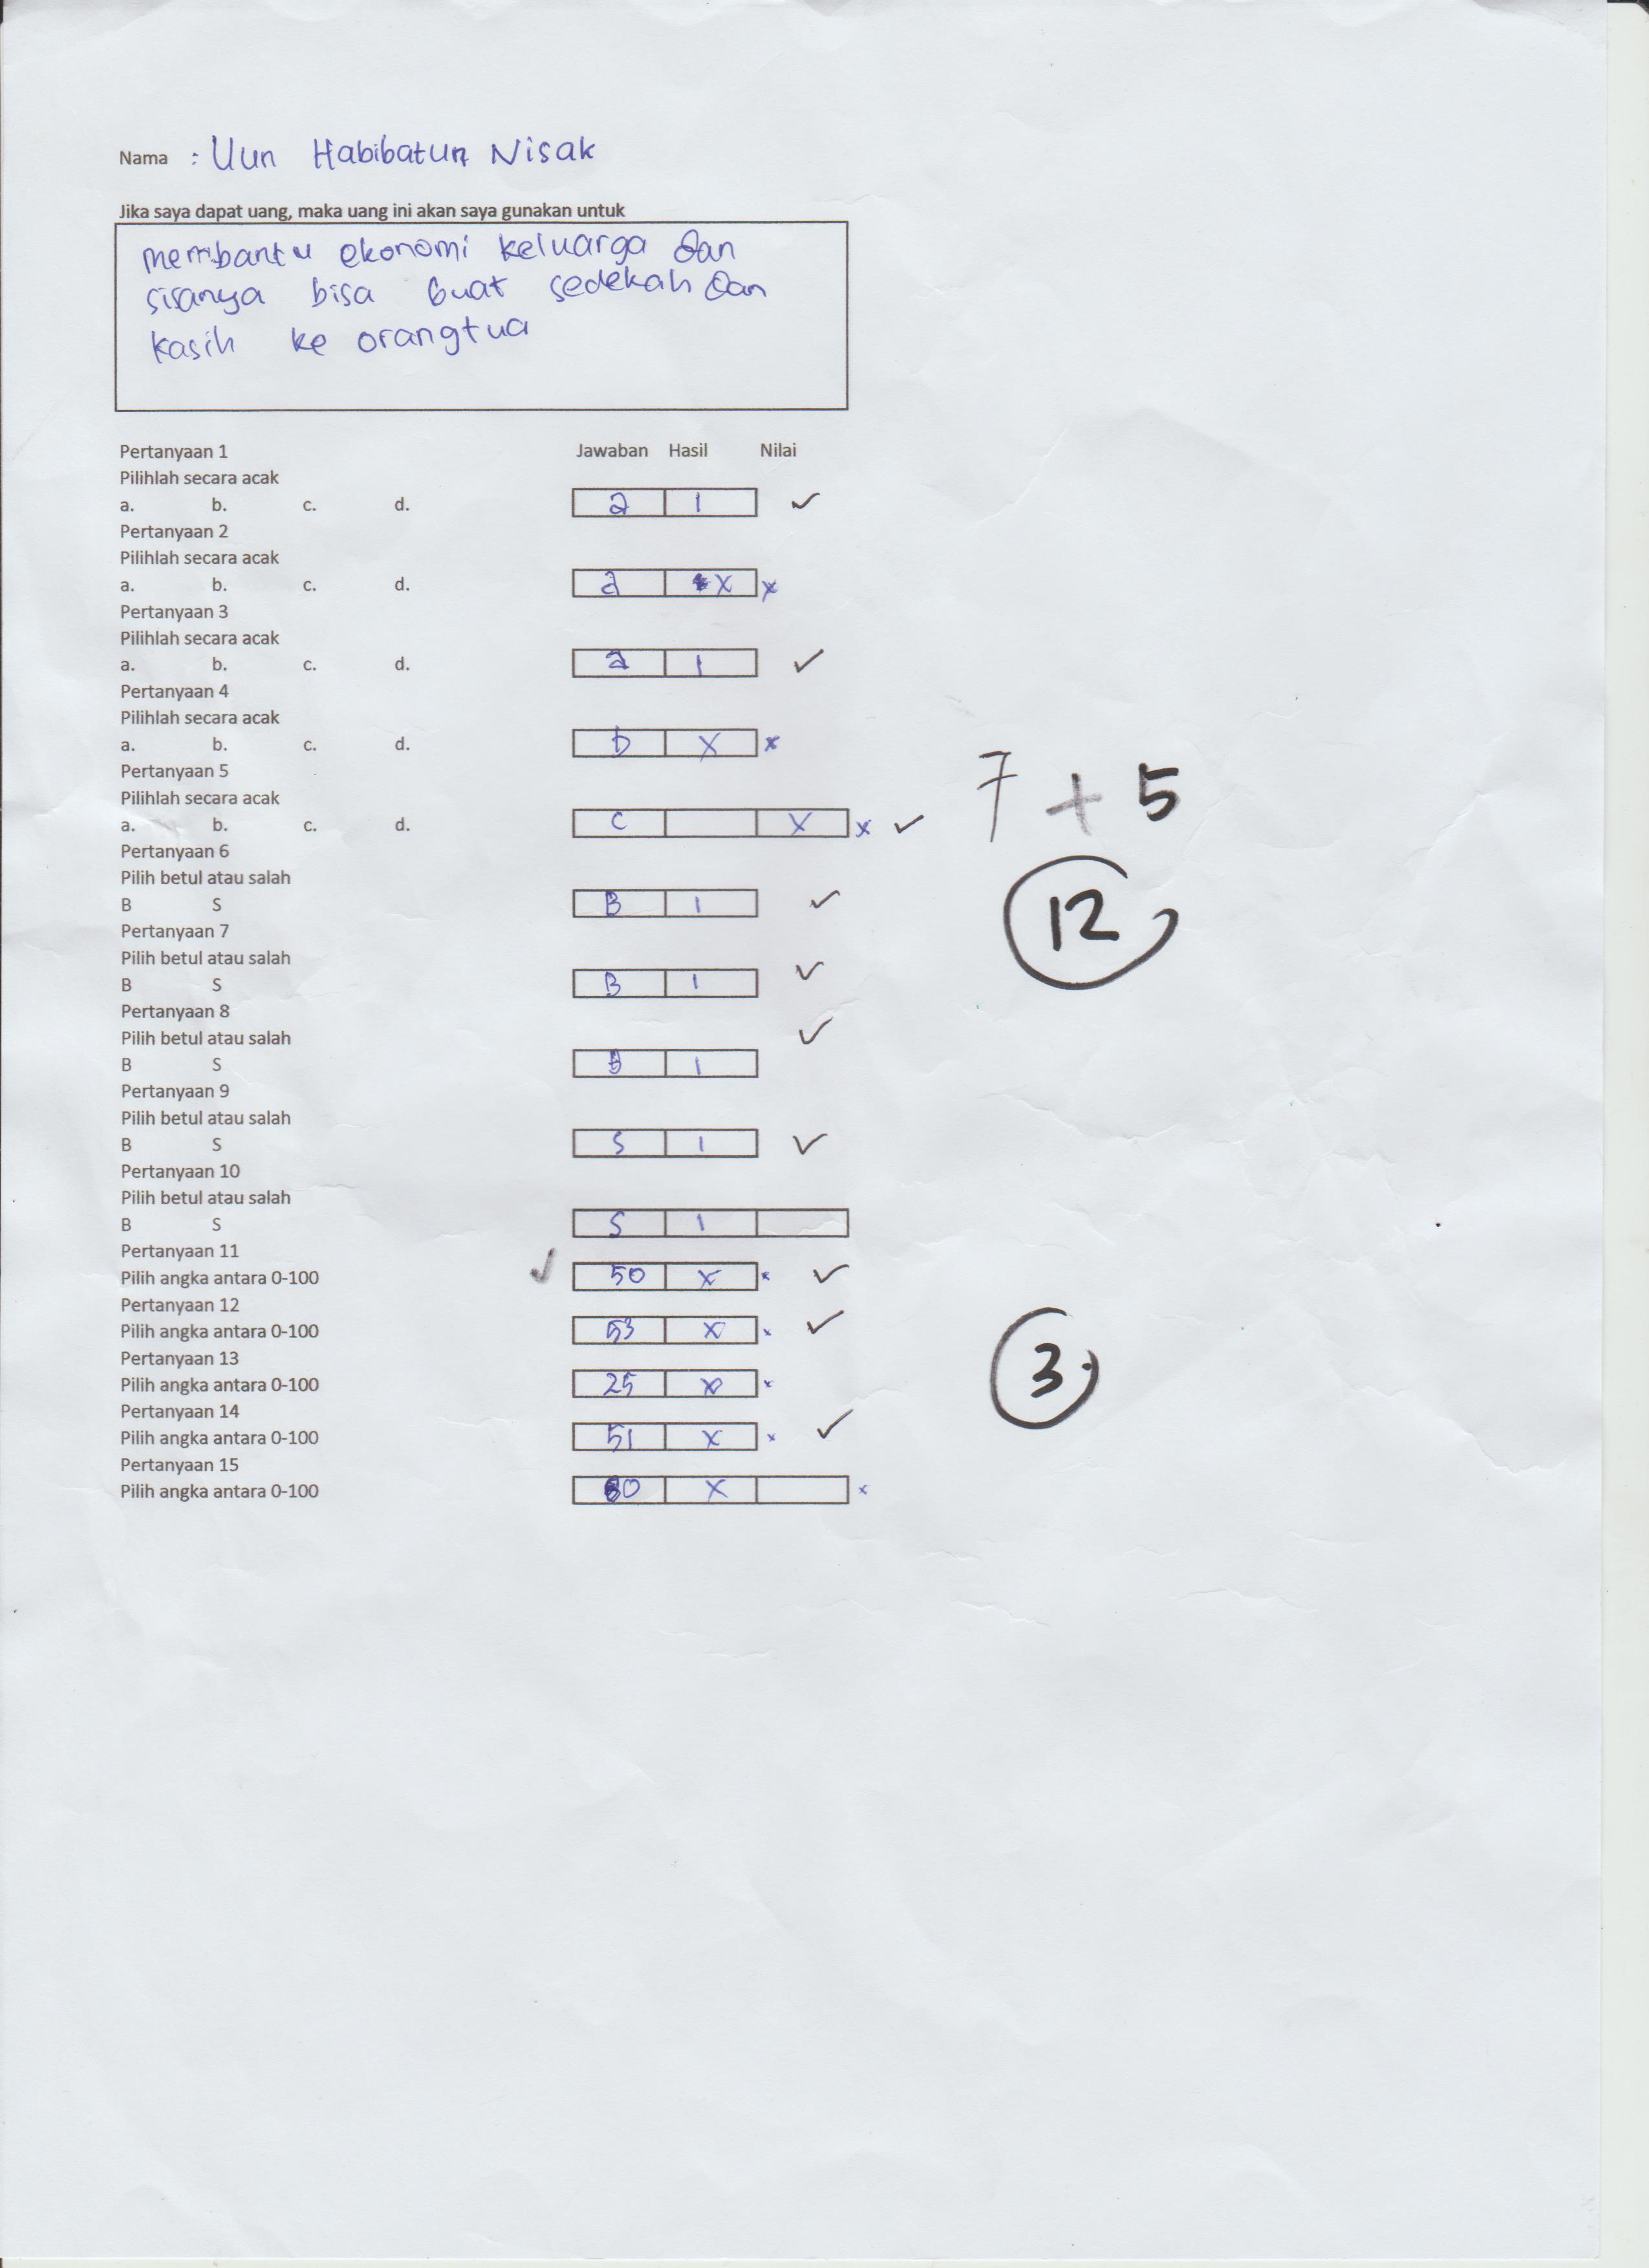 Nama : Uun Habibatun Nisak
Jika saya dapat uang, maka uang ini akan saya gunakan untuk
membantu ekonomi keluarga dan
sisanya bisa buat sedekah dan
kasih ke orangtua
Pertanyaan 1 Jawaban Hasil Nilai
Pilihlah secara acak
a. b. c. d. a 1 ✓
Pertanyaan 2
Pilihlah secara acak
a. b. c. d. a x x
Pertanyaan 3
Pilihlah secara acak
a. b. c. d. a 1 ✓
Pertanyaan 4
Pilihlah secara acak
a. b. c. d. b x x
Pertanyaan 5
Pilihlah secara acak
a. b. c. d. c x x ✓
7 + 5
Pertanyaan 6
Pilih betul atau salah
B S B 1 ✓
12
Pertanyaan 7
Pilih betul atau salah
B S B 1 ✓
Pertanyaan 8
Pilih betul atau salah
B S B 1 ✓
Pertanyaan 9
Pilih betul atau salah
B S S 1 ✓
Pertanyaan 10
Pilih betul atau salah
B S S 1
Pertanyaan 11
Pilih angka antara 0-100 ✓ 50 x x ✓
Pertanyaan 12
Pilih angka antara 0-100 53 x x ✓
Pertanyaan 13
Pilih angka antara 0-100 25 x x
3
Pertanyaan 14
Pilih angka antara 0-100 51 x x ✓
Pertanyaan 15
Pilih angka antara 0-100 x x